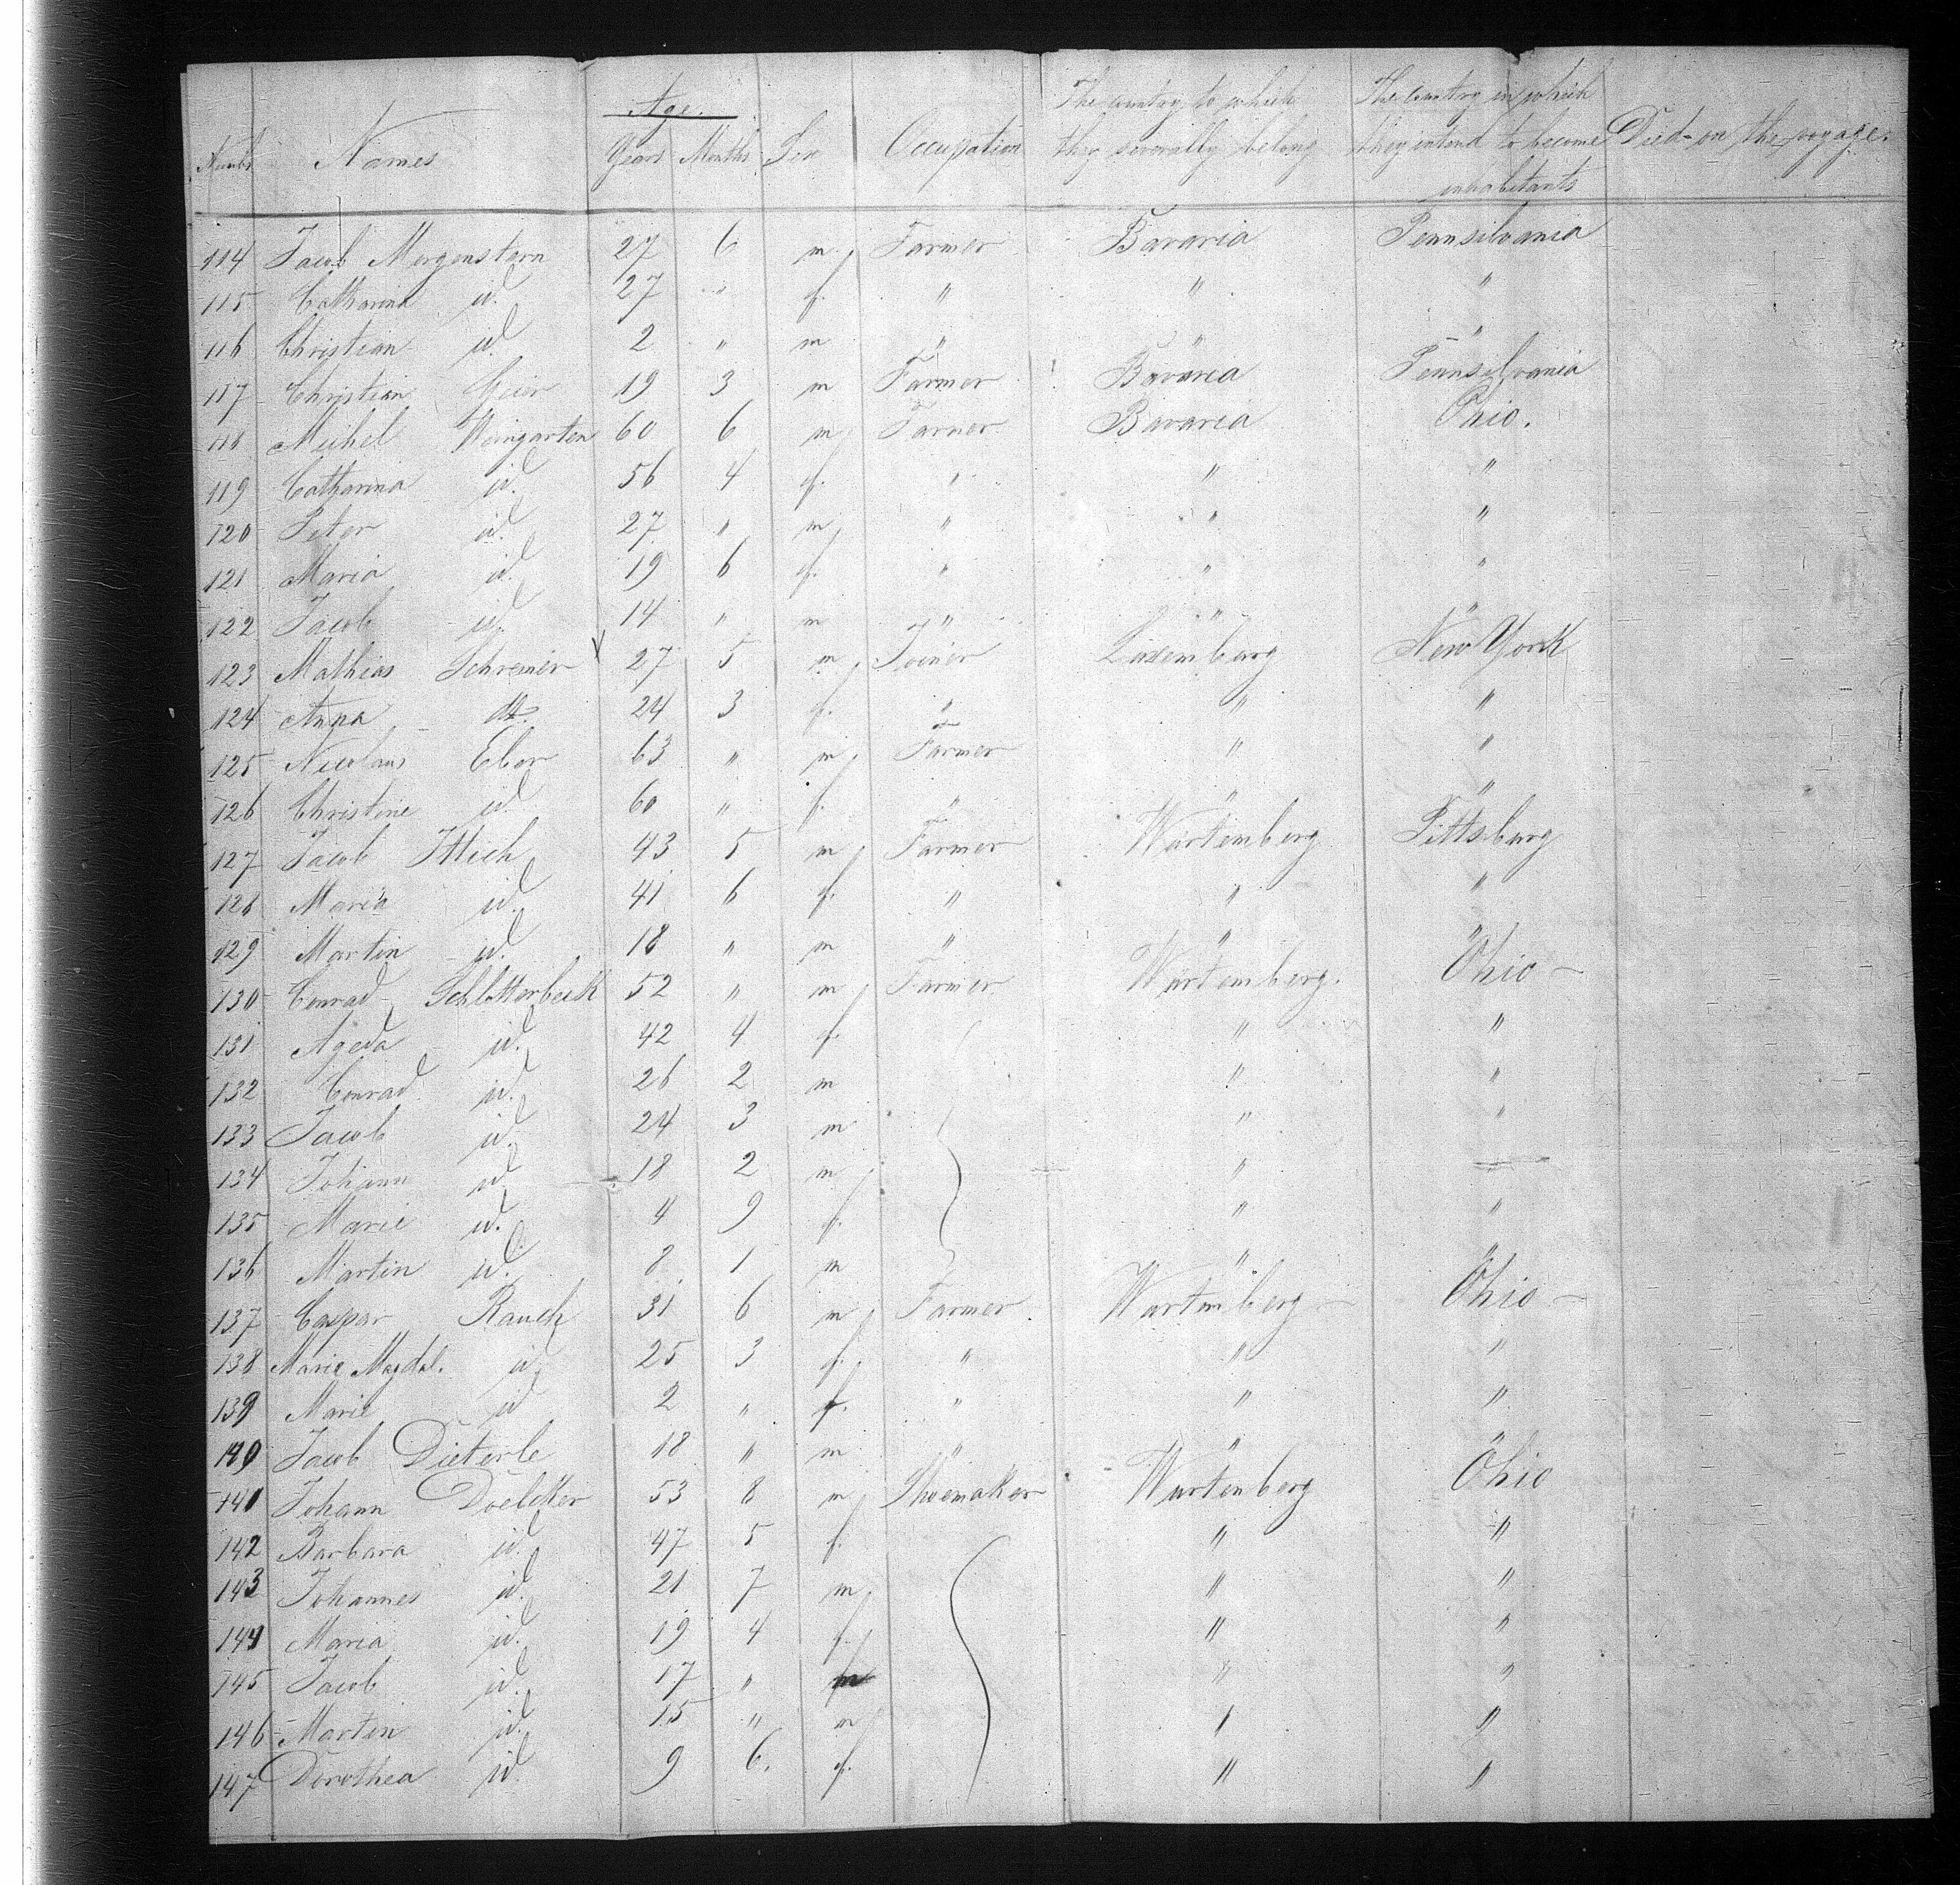 Number Names Age. Years Months Sex Occupation The country to which they severally belong The country in which they intend to become inhabitants Died on the voyage.
114 Jacob Morgenstern 27 6 m Farmer Bavaria Pennsilvania
115 Catharina id. 27 " f. " " "
116 Christian id. 2 " m " " "
117 Christian Geier 19 3 m Farmer Bavaria Pennsilvania
118 Michel Weingarten 60 6 m Farmer Bavaria Ohio.
119 Catharina id. 56 4 f. " " "
120 Peter id. 27 " m " " "
121 Maria id. 19 6 f. " " "
122 Jacob id. 14 " m " " "
123 Mathias Schreiner 27 5 m Joiner Luxemburg New York
124 Anna do. 24 3 f. " " "
125 Nicolaus Eber 63 " m Farmer " "
126 Christine id. 60 " f. " " "
127 Jacob Ittich 43 5 m Farmer Wurtemberg Pittsburg
128 Maria id. 41 6 f. " " "
129 Martin id. 18 " m " " "
130 Conrad Schlotterbeck 52 " m Farmer Wurtemberg. Ohio
131 Ageda id. 42 4 f. " "
132 Conrad id. 26 2 m " "
133 Jacob id. 24 3 m " "
134 Johann id. 18 2 m " "
135 Marie id. 4 9 f. " "
136 Martin id. 8 1 m " "
137 Caspar Rauch 31 6 m Farmer Wurtemberg Ohio
138 Marie Magdal. id. 25 3 f. " " "
139 Marie id 2 " f. " " "
140 Jacob Dieterle 18 " m " " "
141 Johann Doelcker 53 8 m Shoemaker Wurtemberg Ohio
142 Barbara id. 47 5 f. " "
143 Johannes id. 21 7 m " "
144 Maria id. 19 4 f. " "
145 Jacob id. 17 " m " "
146 Martin id. 15 " m " "
147 Dorothea id. 9 6. f. " "